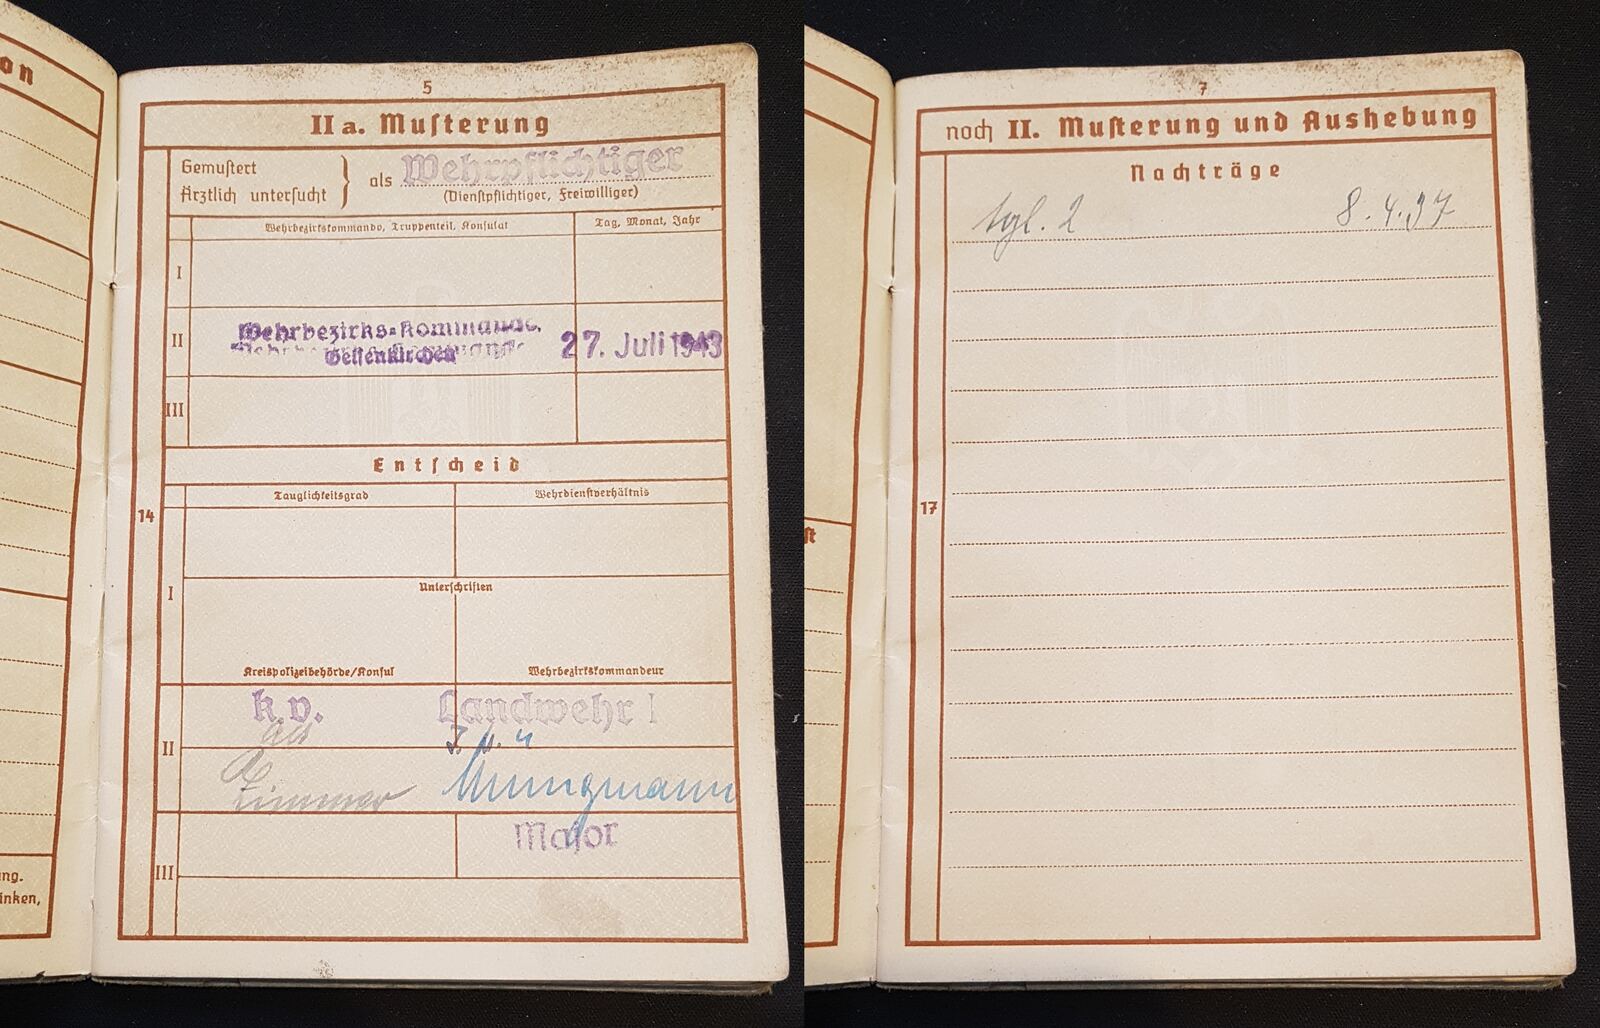 on
ng.
inken,
5
IIa. Muſterung
Gemuſtert
Ärztlich unterſucht
als Wehrpflichtiger
(Dienſtpflichtiger, Freiwilliger)
Wehrbezirkskommando, Truppenteil, Konſulat
Tag, Monat, Jahr
I
II
Wehrbezirks-Kommando
Gelſenkirchen
27. Juli 1943
III
Entſcheid
Tauglichkeitsgrad
Wehrdienſtverhältnis
14
I
Unterſchriften
Kreispolizeibehörde/Konſul
Wehrbezirkskommandeur
II
k.v.
Landwehr I
Major
III
ſt
7
noch II. Muſterung und Aushebung
Nachträge
tgl. 2 8.4.37
17